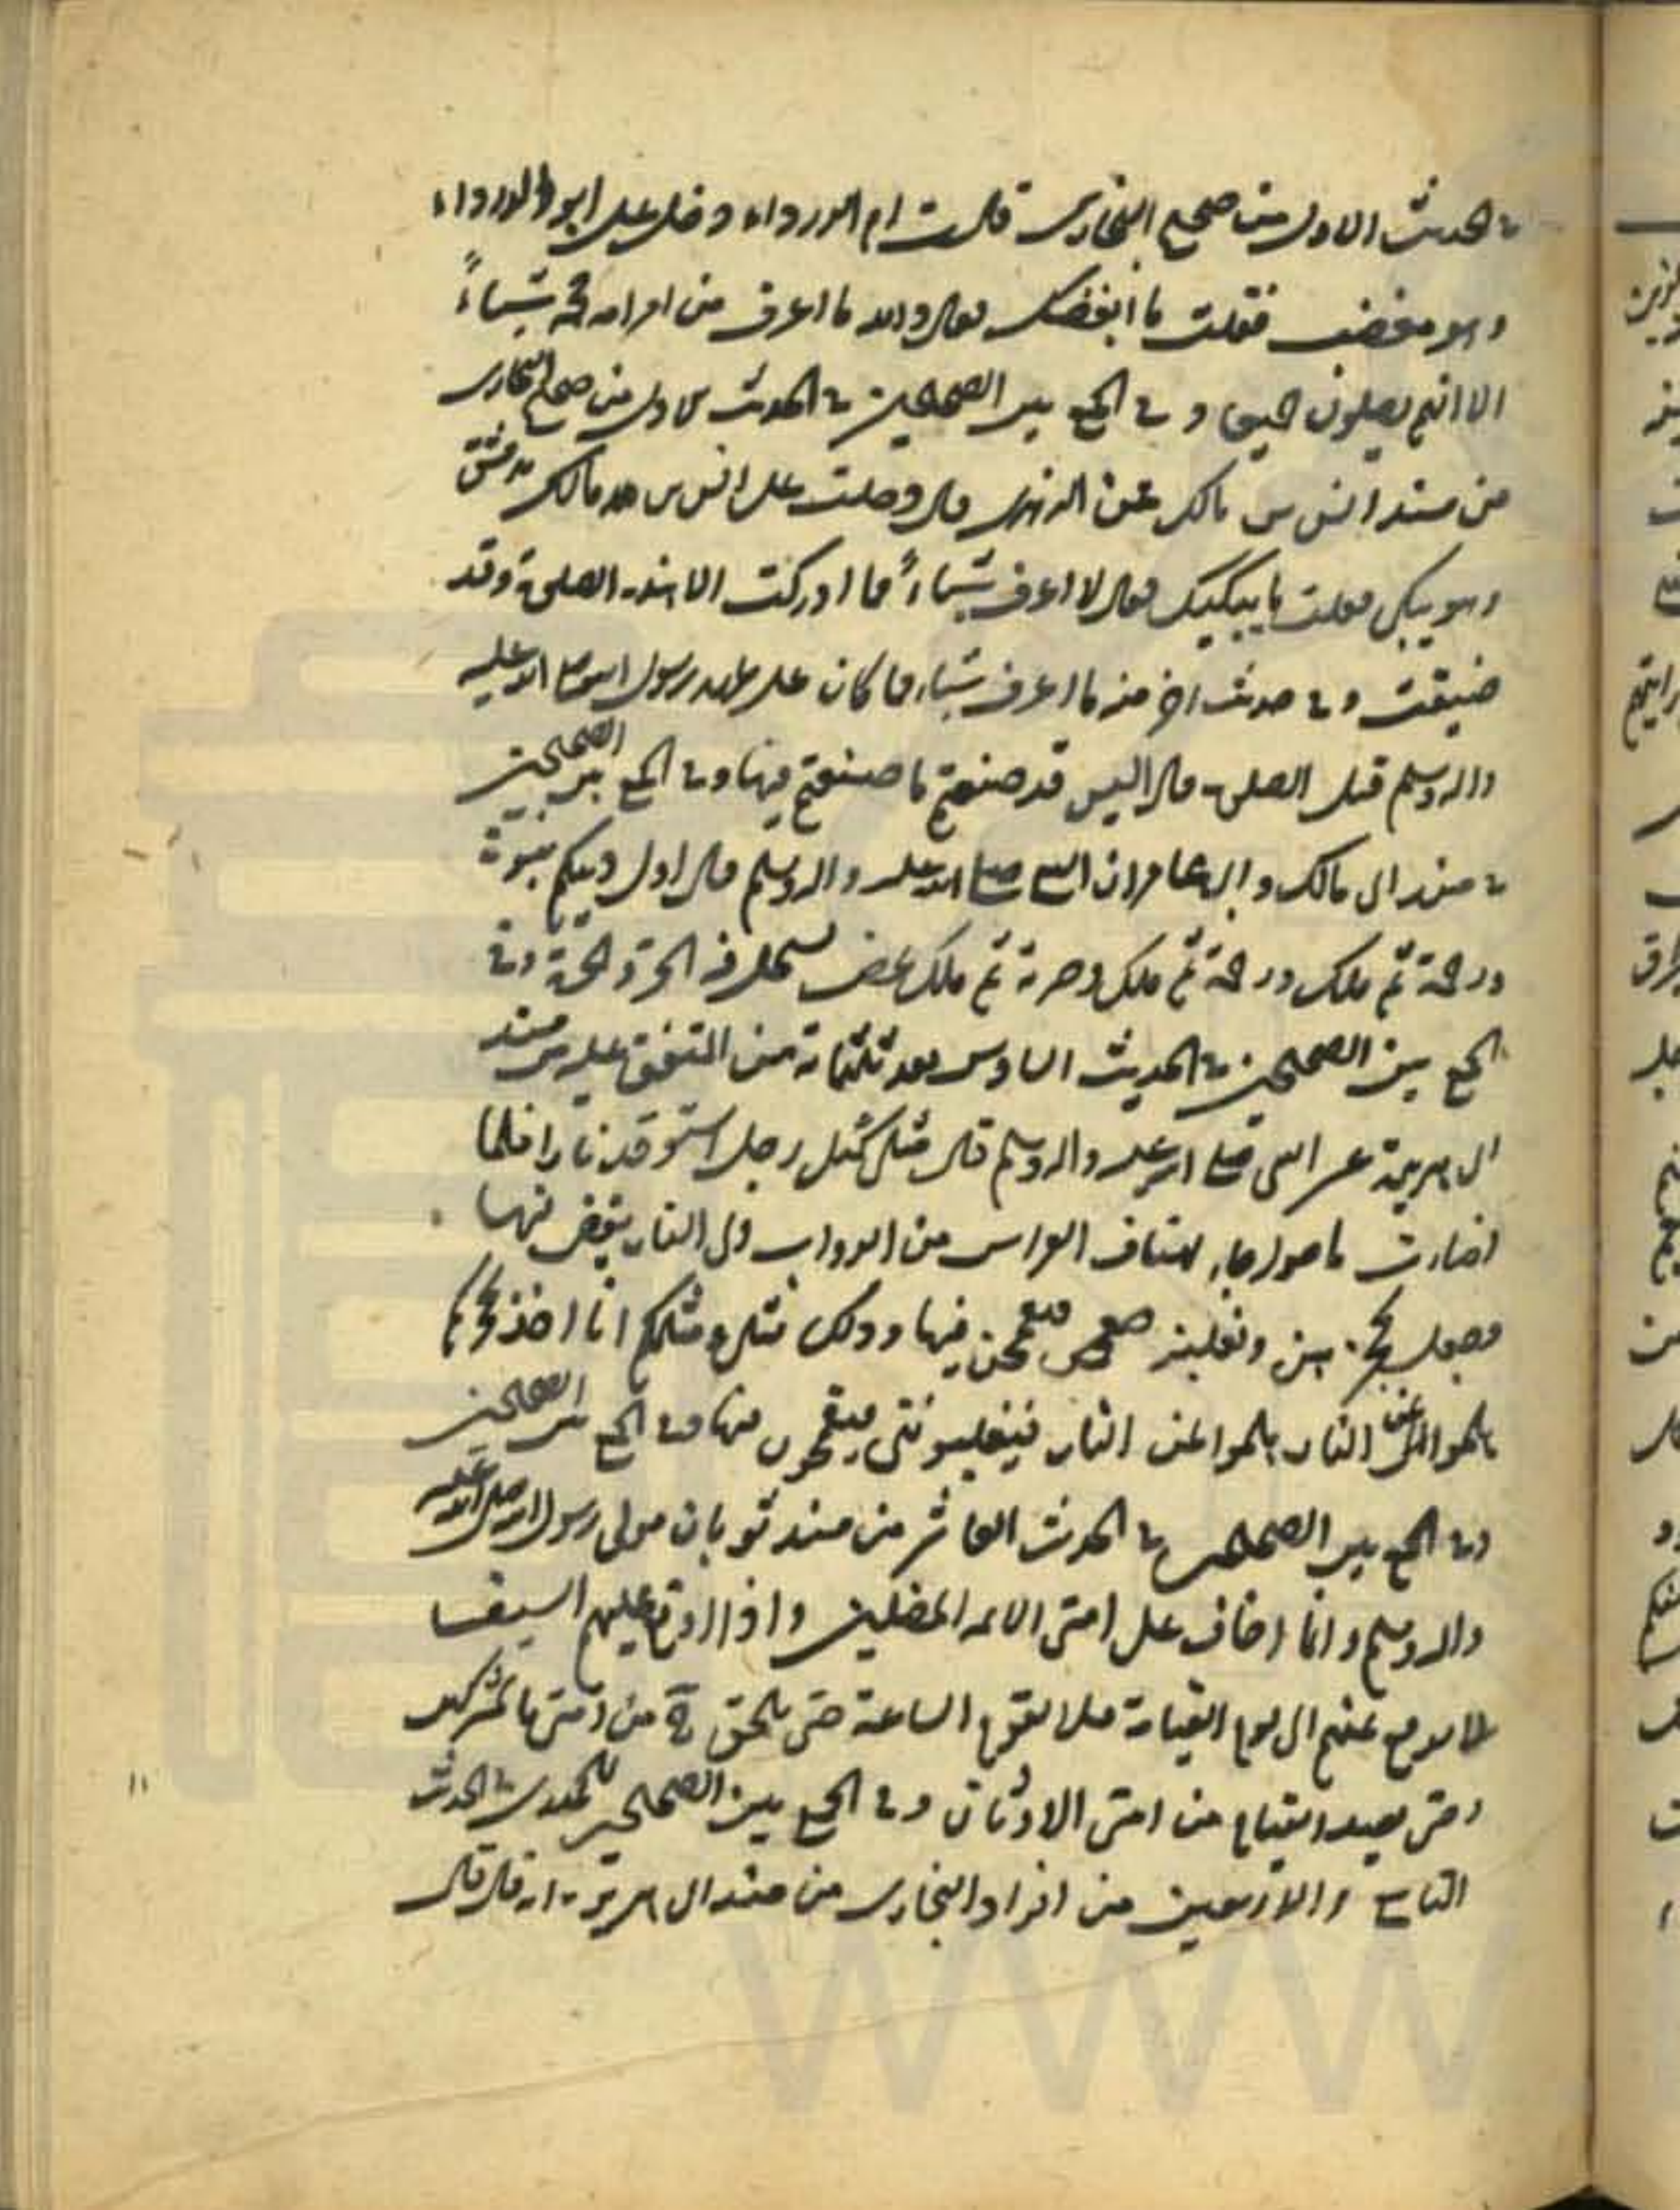 في الحديث الاول من صحيح البخاري قالت ام الدرداء دخل علي ابو الدرداء
وهو مغضب فقلت ما اغضبك فقال والله ما اعرف من امر امة محمد شيئاً
الا انهم يصلون جميعا و في الجمع بين الصحيحين في الحديث الاول من صحيح البخاري
من مسند انس بن مالك عن الزهري قال دخلت على انس بن مالك بدمشق
وهو يبكي فقلت ما يبكيك فقال لا اعرف شيئاً مما ادركت الا هذه الصلوة وقد
ضيعت و في حديث اخر منه ما اعرف شيئا مما كان على عهد رسول الله صلى الله عليه
واله وسلم قيل الصلوة قال اليس قد صنعتم ما صنعتم فيها و في الجمع بين الصحيحين
في مسند ابي مالك و ابي عامر ان النبي صلى الله عليه واله وسلم قال اول دينكم نبوة
ورحمة ثم ملك ورحمة ثم ملك وجبرية ثم ملك عض يستحل فيه الحر و الحرة و في
الجمع بين الصحيحين في الحديث السادس بعد ثلثمائة من المتفق عليه من مسند
ابي هريرة عن النبي صلى الله عليه واله وسلم قال مثلي كمثل رجل استوقد نارا فلما
اضاءت ما حولها جاء الفراش من الدواب الى النار يقعن فيها
وجعل يحجزهن و يغلبنه فيقتحمن فيها وذلك مثلي و مثلكم انا اخذ بحجزكم
هلموا عن النار هلموا عن النار فيغلبونني فيقتحمون فيها و في الجمع بين الصحيحين
و في الجمع بين الصحيحين في الحديث العاشر من مسند ثوبان مولى رسول الله صلى الله عليه
واله وسلم وانما اخاف على امتي الائمة المضلين و اذا وقع عليهم السيف
لا يرفع عنهم الى يوم القيامة فلا تقوم الساعة حتى يلحق من امتي بالمشركين
وحتى يعبد من امتي الاوثان و في الجمع بين الصحيحين للحميدي في الحديث
التاسع والاربعين من افراد البخاري من مسند ابي هريرة انه قال قال